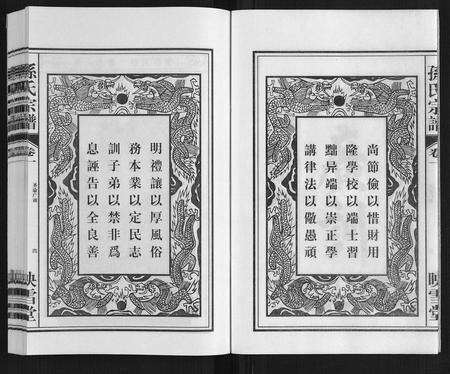 尚節儉以惜財用
隆學校以端士習
黜异端以崇正學
講律法以儆愚頑
孫氏宗譜
卷
映雪堂
明禮讓以厚風俗
務本業以定民志
訓子弟以禁非爲
息誣告以全良善
孫氏宗譜
卷一
四
映雪堂